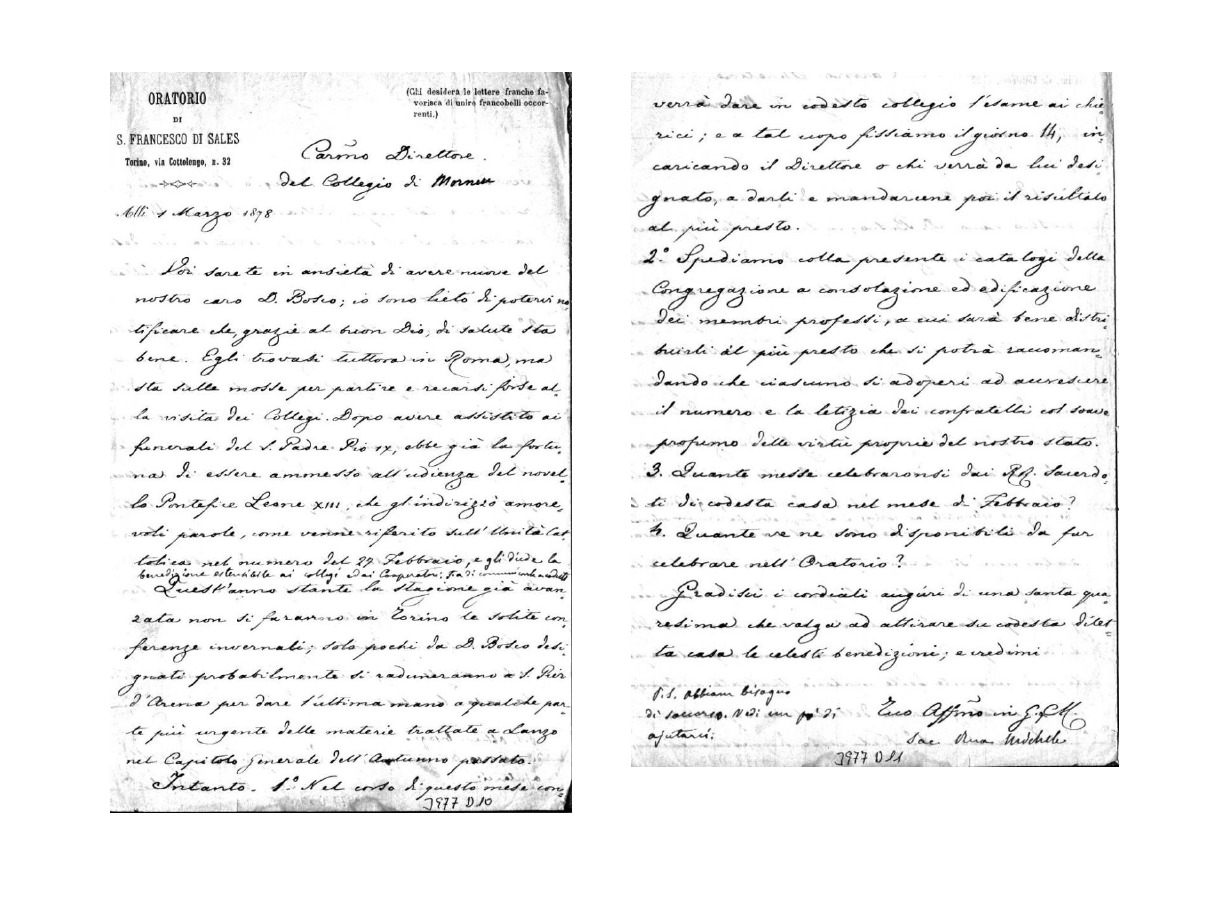 ORATORIO
DI
S. FRANCESCO DI SALES
Torino, via Cottolengo, n. 32
(Chi desidera le lettere franche fa-
vorisca di unire francobolli occor-
renti.)
Carmo Direttore
del Collegio di Mornese
Alli 1 Marzo 1878
Voi sarete in ansietà di avere nuove del
nostro caro D. Bosco; io sono lieto di potervi no-
tificare che, grazie al buon Dio, di salute sta
bene. Egli trovasi tuttora in Roma, ma
sta sulle mosse per partire e recarsi forse al-
la visita dei Collegi. Dopo avere assistito ai
funerali del S. Padre Pio IX, ebbe già la fortu-
na di essere ammesso all'udienza del novel-
lo Pontefice Leone XIII, che gl'indirizzò amore-
voli parole, come venne riferito sull'Unità Cat-
tolica nel numero del 27 Febbraio, e gli diede la
benedizione estensibile ai collegi e dai Cooperatori;
Quest'anno stante la stagione già avan-
zata non si faranno in Torino le solite con-
ferenze invernali; solo pochi da D. Bosco desi-
gnati probabilmente si raduneranno a S. Pier
d'Arena per dare l'ultima mano a qualche par-
te più urgente delle materie trattate a Lanzo
nel Capitolo Generale dell'Autunno passato.
Intanto. 1.° Nel corso di questo mese con-
J977 D10
verrà dare in codesto collegio l'esame ai chie-
rici; e a tal uopo fissiamo il giorno 14, in-
caricando il Direttore o chi verrà da lui desi-
gnato, a darli e mandarcene poi il risultato
al più presto.
2.° Spediamo colla presente i catalogi della
Congregazione a consolazione ed edificazione
dei membri professi, a cui sarà bene distri-
buirli al più presto che si potrà raccoman-
dando che ciascuno si adoperi ad accrescere
il numero e la letizia dei confratelli col soave
profumo delle virtù proprie del nostro stato.
3. Quante messe celebraronsi dai RR. Sacerdo-
ti di codesta casa nel mese di Febbraio?
4. Quante ve ne sono disponibili da far
celebrare nell'Oratorio?
Gradisci i cordiali auguri di una santa qua-
resima che valga ad attirare su codesta dilet-
ta casa le celesti benedizioni; e credimi
P.S. Abbiam bisogno
di soccorso. Vedi un po' di
ajutarci.
Tuo Affmo in G. e M.
Sac. Rua Michele
J977 D11